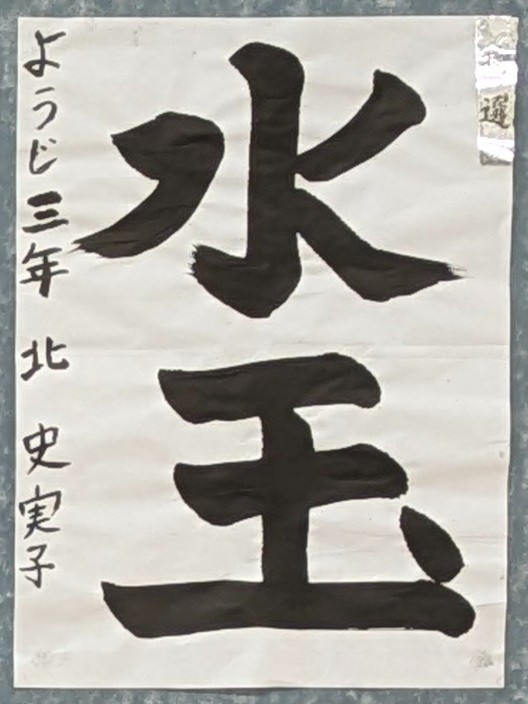 選
水玉
ようじ三年 北 史実子